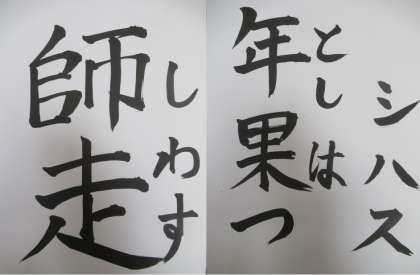 師走
しわす
年果つ
とし は
シハス